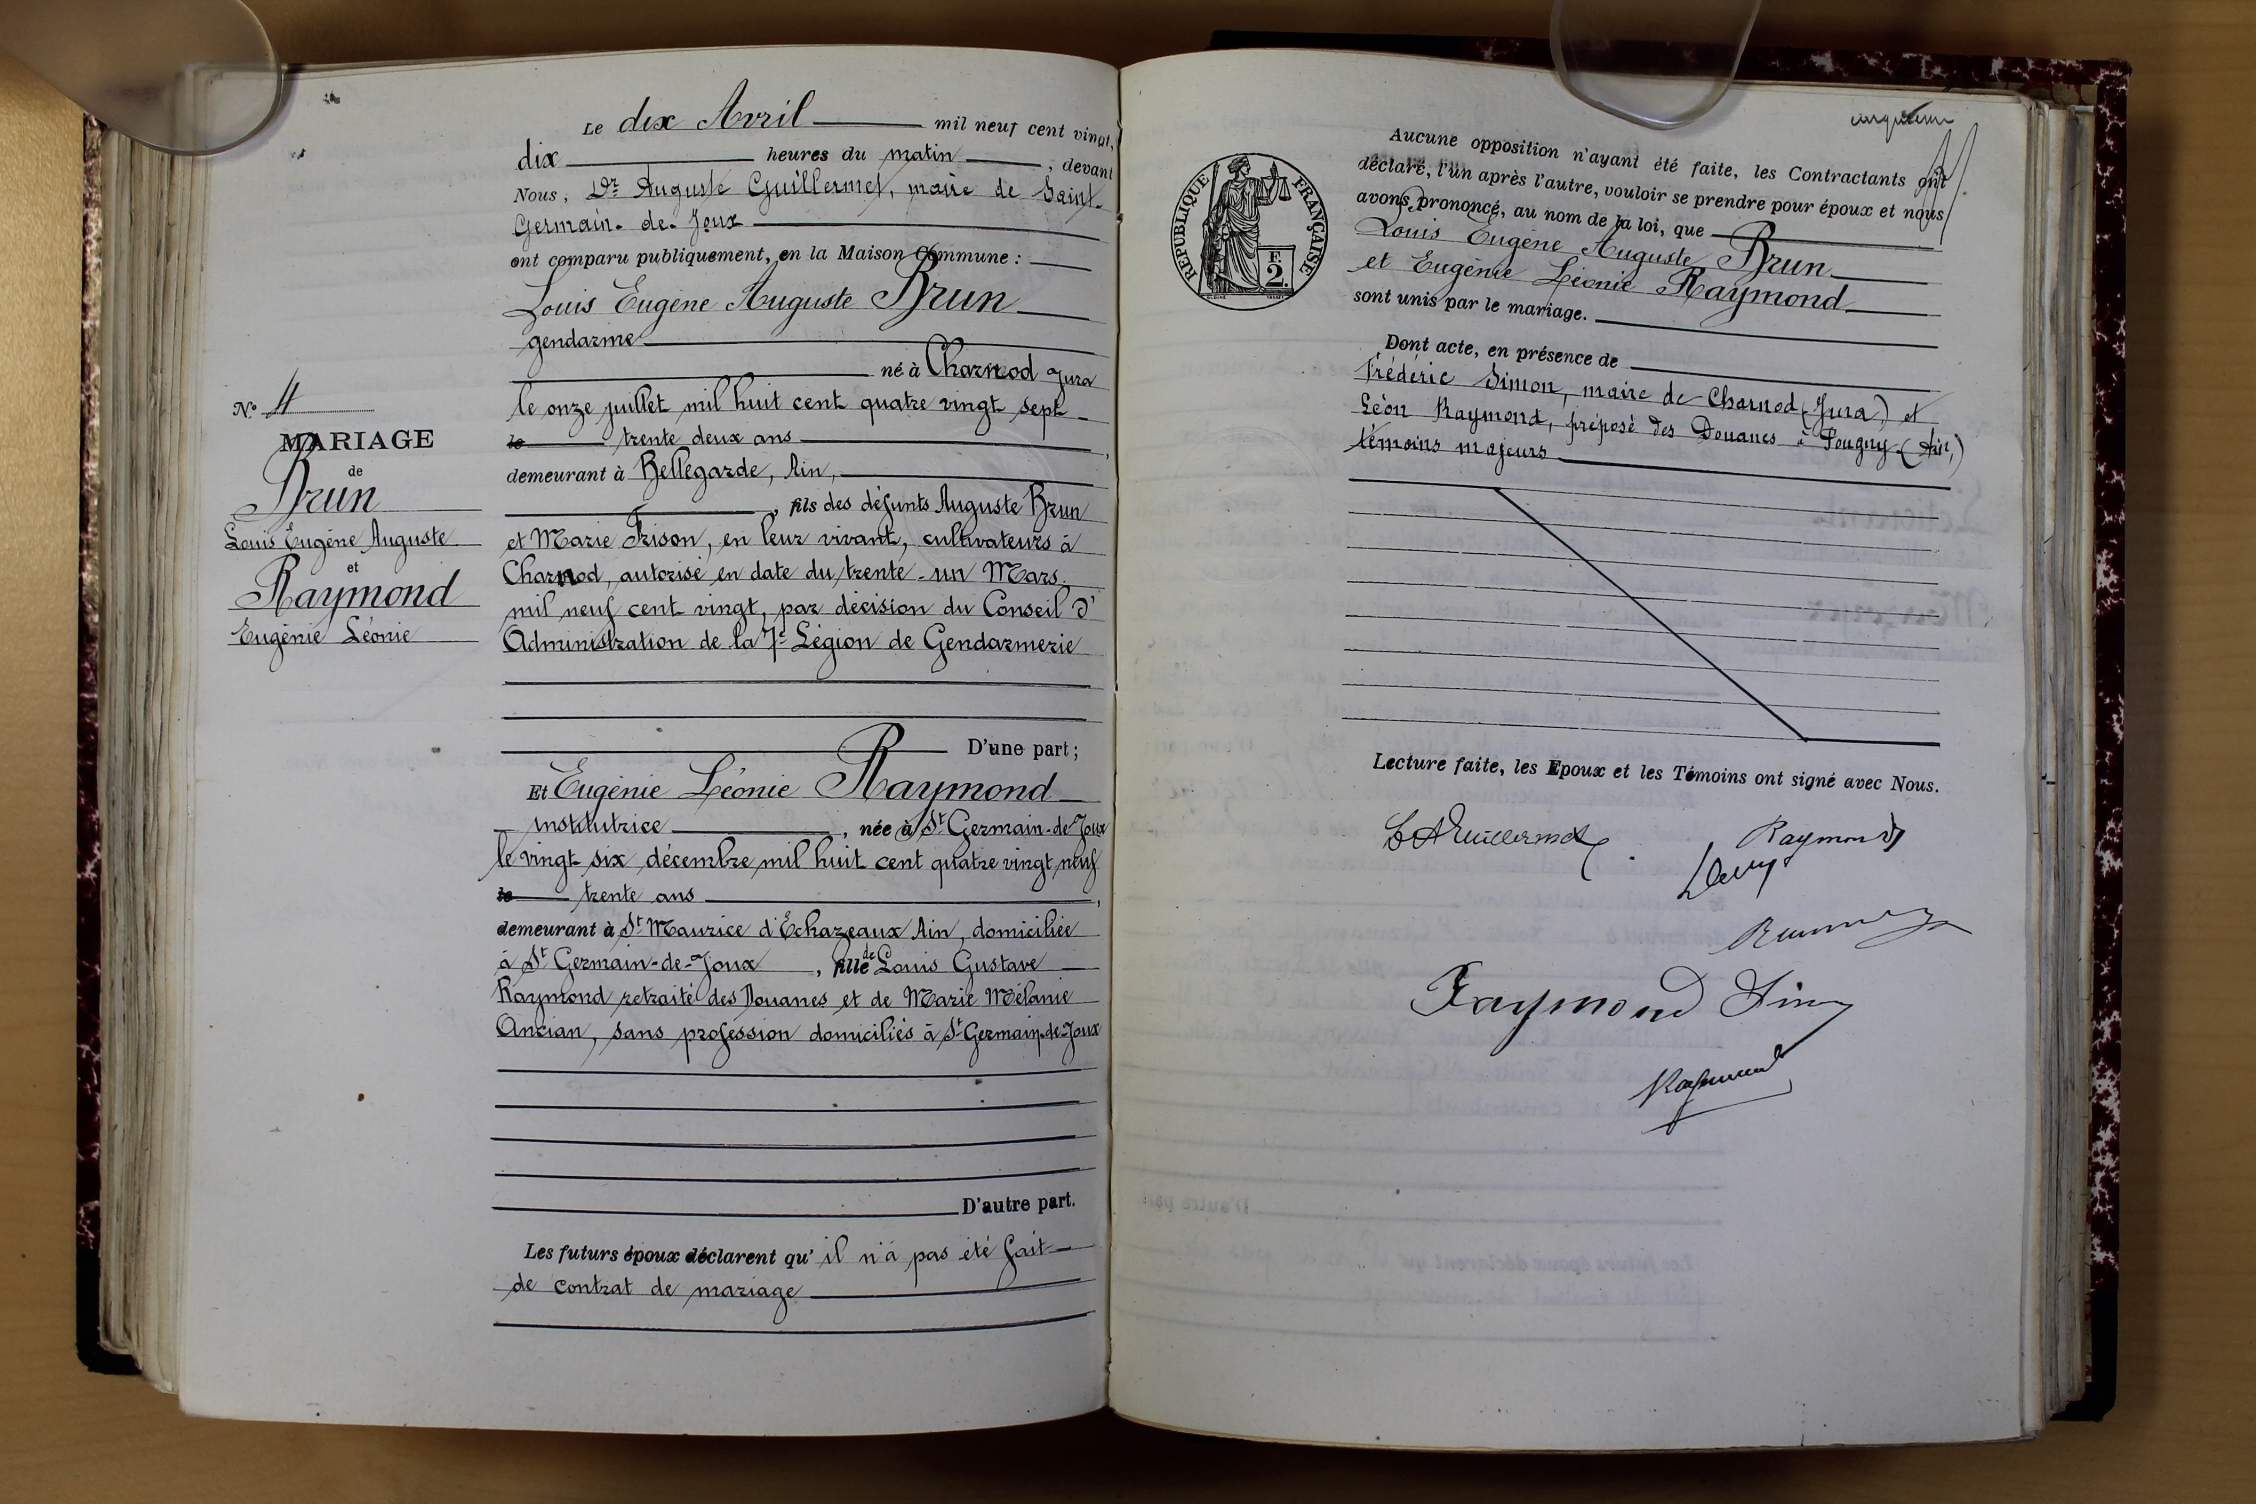 Le dix Avril mil neuf cent vingt,
dix heures du matin, devant
Nous, Dr Auguste Guillermet, maire de Saint-
Germain-de-Joux
ont comparu publiquement, en la Maison Commune :
Louis Eugène Auguste Brun
gendarme
né à Charnod Jura
le onze juillet mil huit cent quatre vingt sept
le trente deux ans,
demeurant à Bellegarde, Ain,
, fils des défunts Auguste Brun
et Marie Frison, en leur vivant, cultivateurs à
Charnod, autorisé en date du trente-un Mars
mil neuf cent vingt, par décision du Conseil d'
Administration de la 7e Légion de Gendarmerie
D'une part ;
Et Eugénie Léonie Raymond
institutrice, née à St Germain-de-Joux
le vingt six décembre mil huit cent quatre vingt neuf
le trente ans,
demeurant à St Maurice d'Echazeaux Ain, domiciliée
à St Germain-de-Joux, fille de Louis Gustave
Raymond retraité des Douanes et de Marie Mélanie
Ancian, sans profession domiciliés à St Germain-de-Joux
D'autre part.
Les futurs époux déclarent qu'il n'a pas été fait
de contrat de mariage
No 4
MARIAGE
de
Brun
Louis Eugène Auguste
et
Raymond
Eugénie Léonie
RÉPUBLIQUE FRANÇAISE
F.
2.
Aucune opposition n'ayant été faite, les Contractants ont
déclaré, l'un après l'autre, vouloir se prendre pour époux et nous
avons prononcé, au nom de la loi, que
Louis Eugène Auguste Brun
et Eugénie Léonie Raymond
sont unis par le mariage.
Dont acte, en présence de
Frédéric Simon, maire de Charnod (Jura) et
Léon Raymond, préposé des Douanes à Pougny (Ain,)
témoins majeurs
Lecture faite, les Epoux et les Témoins ont signé avec Nous.
Guillermet
Raymond
Raymond
Raymond